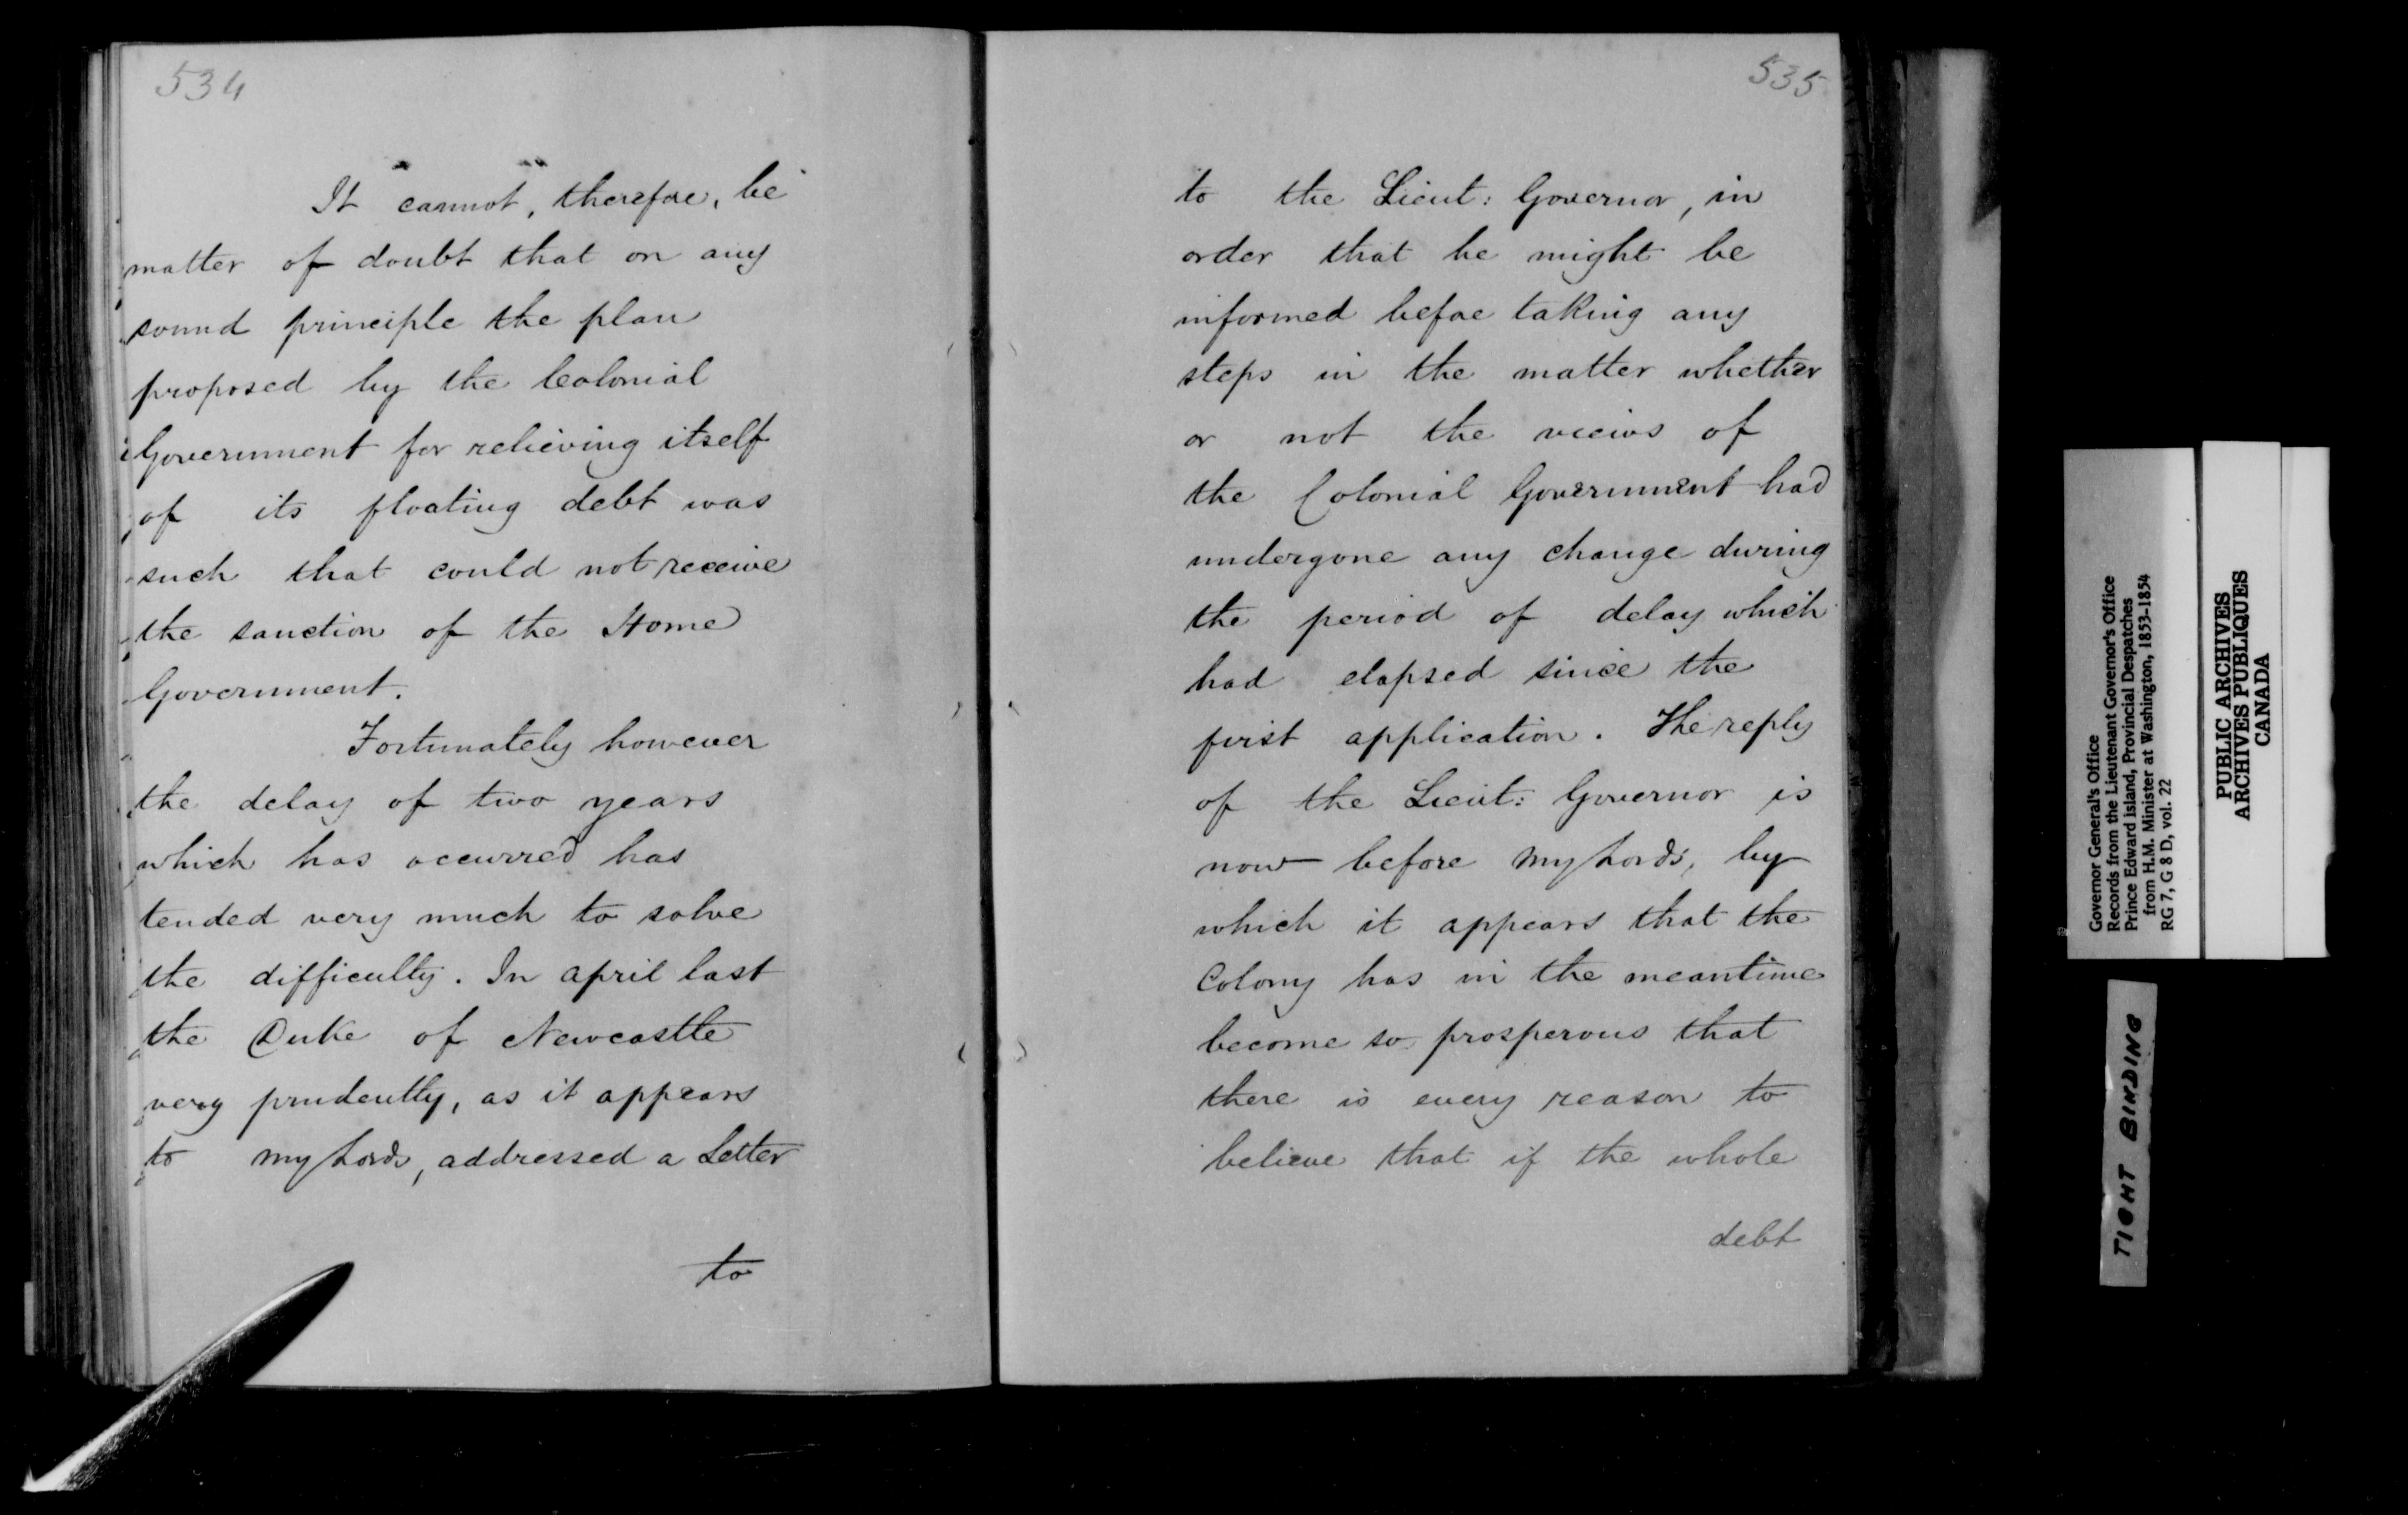 534
It cannot, therefore, be
matter of doubt that on any
sound principle the plan
proposed by the Colonial
Government for relieving itself
of its floating debt was
such that could not receive
the sanction of the Home
Government.
Fortunately however
the delay of two years
which has occurred has
tended very much to solve
the difficulty. In april last
the Duke of Newcastle
very prudently, as it appears
to my Lords, addressed a Letter
to
535
to the Lieut: Governor, in
order that he might be
informed before taking any
steps in the matter whether
or not the views of
the Colonial Government had
undergone any change during
the period of delay which
had elapsed since the
first application. The reply
of the Lieut: Governor is
now before my Lords, by
which it appears that the
Colony has in the meantime
become so prosperous that
there is every reason to
believe that if the whole
debt
Governor General's Office
Records from the Lieutenant Governor's Office
Prince Edward Island, Provincial Despatches
from H.M. Minister at Washington, 1853-1854
RG 7, G 8 D, vol. 22
PUBLIC ARCHIVES
ARCHIVES PUBLIQUES
CANADA
TIGHT BINDING